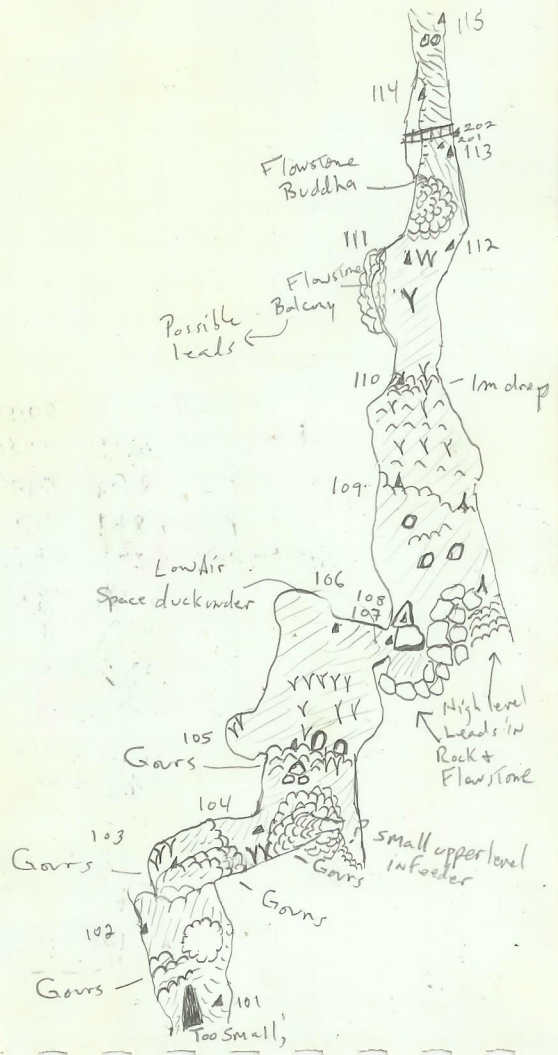 115
114
202
201
113
Flowstone
Buddha
111
112
Flowstone
Balcony
Possible
leads
110
1m drop
109
Low Air
Space duckunder
106
108
107
High level
Leads in
Rock &
Flowstone
105
Gours
104
103
Gours
small upper level
infeeder
Gours
Gours
102
Gours
101
Too small,